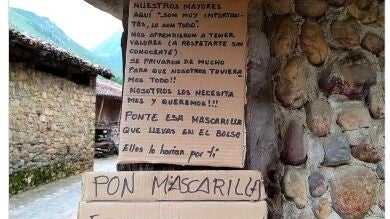 NUESTROS MAYORES
AQUI "SON MUY IMPORTAN-
TES, LO SON TODO".
NOS APRENDIERON A TENER
VALORES (A RESPETARTE SIN
CONOCERTE).
SE PRIVARON DE MUCHO
PARA QUE NOSOTROS TUVIERA
MOS TODO!!
NOSOTROS LOS NECESITA
MOS Y QUEREMOS!!!
PONTE ESA MASCARILLA
QUE LLEVAS EN EL BOLSO
Ellos lo harían por ti
PON MASCARILLA